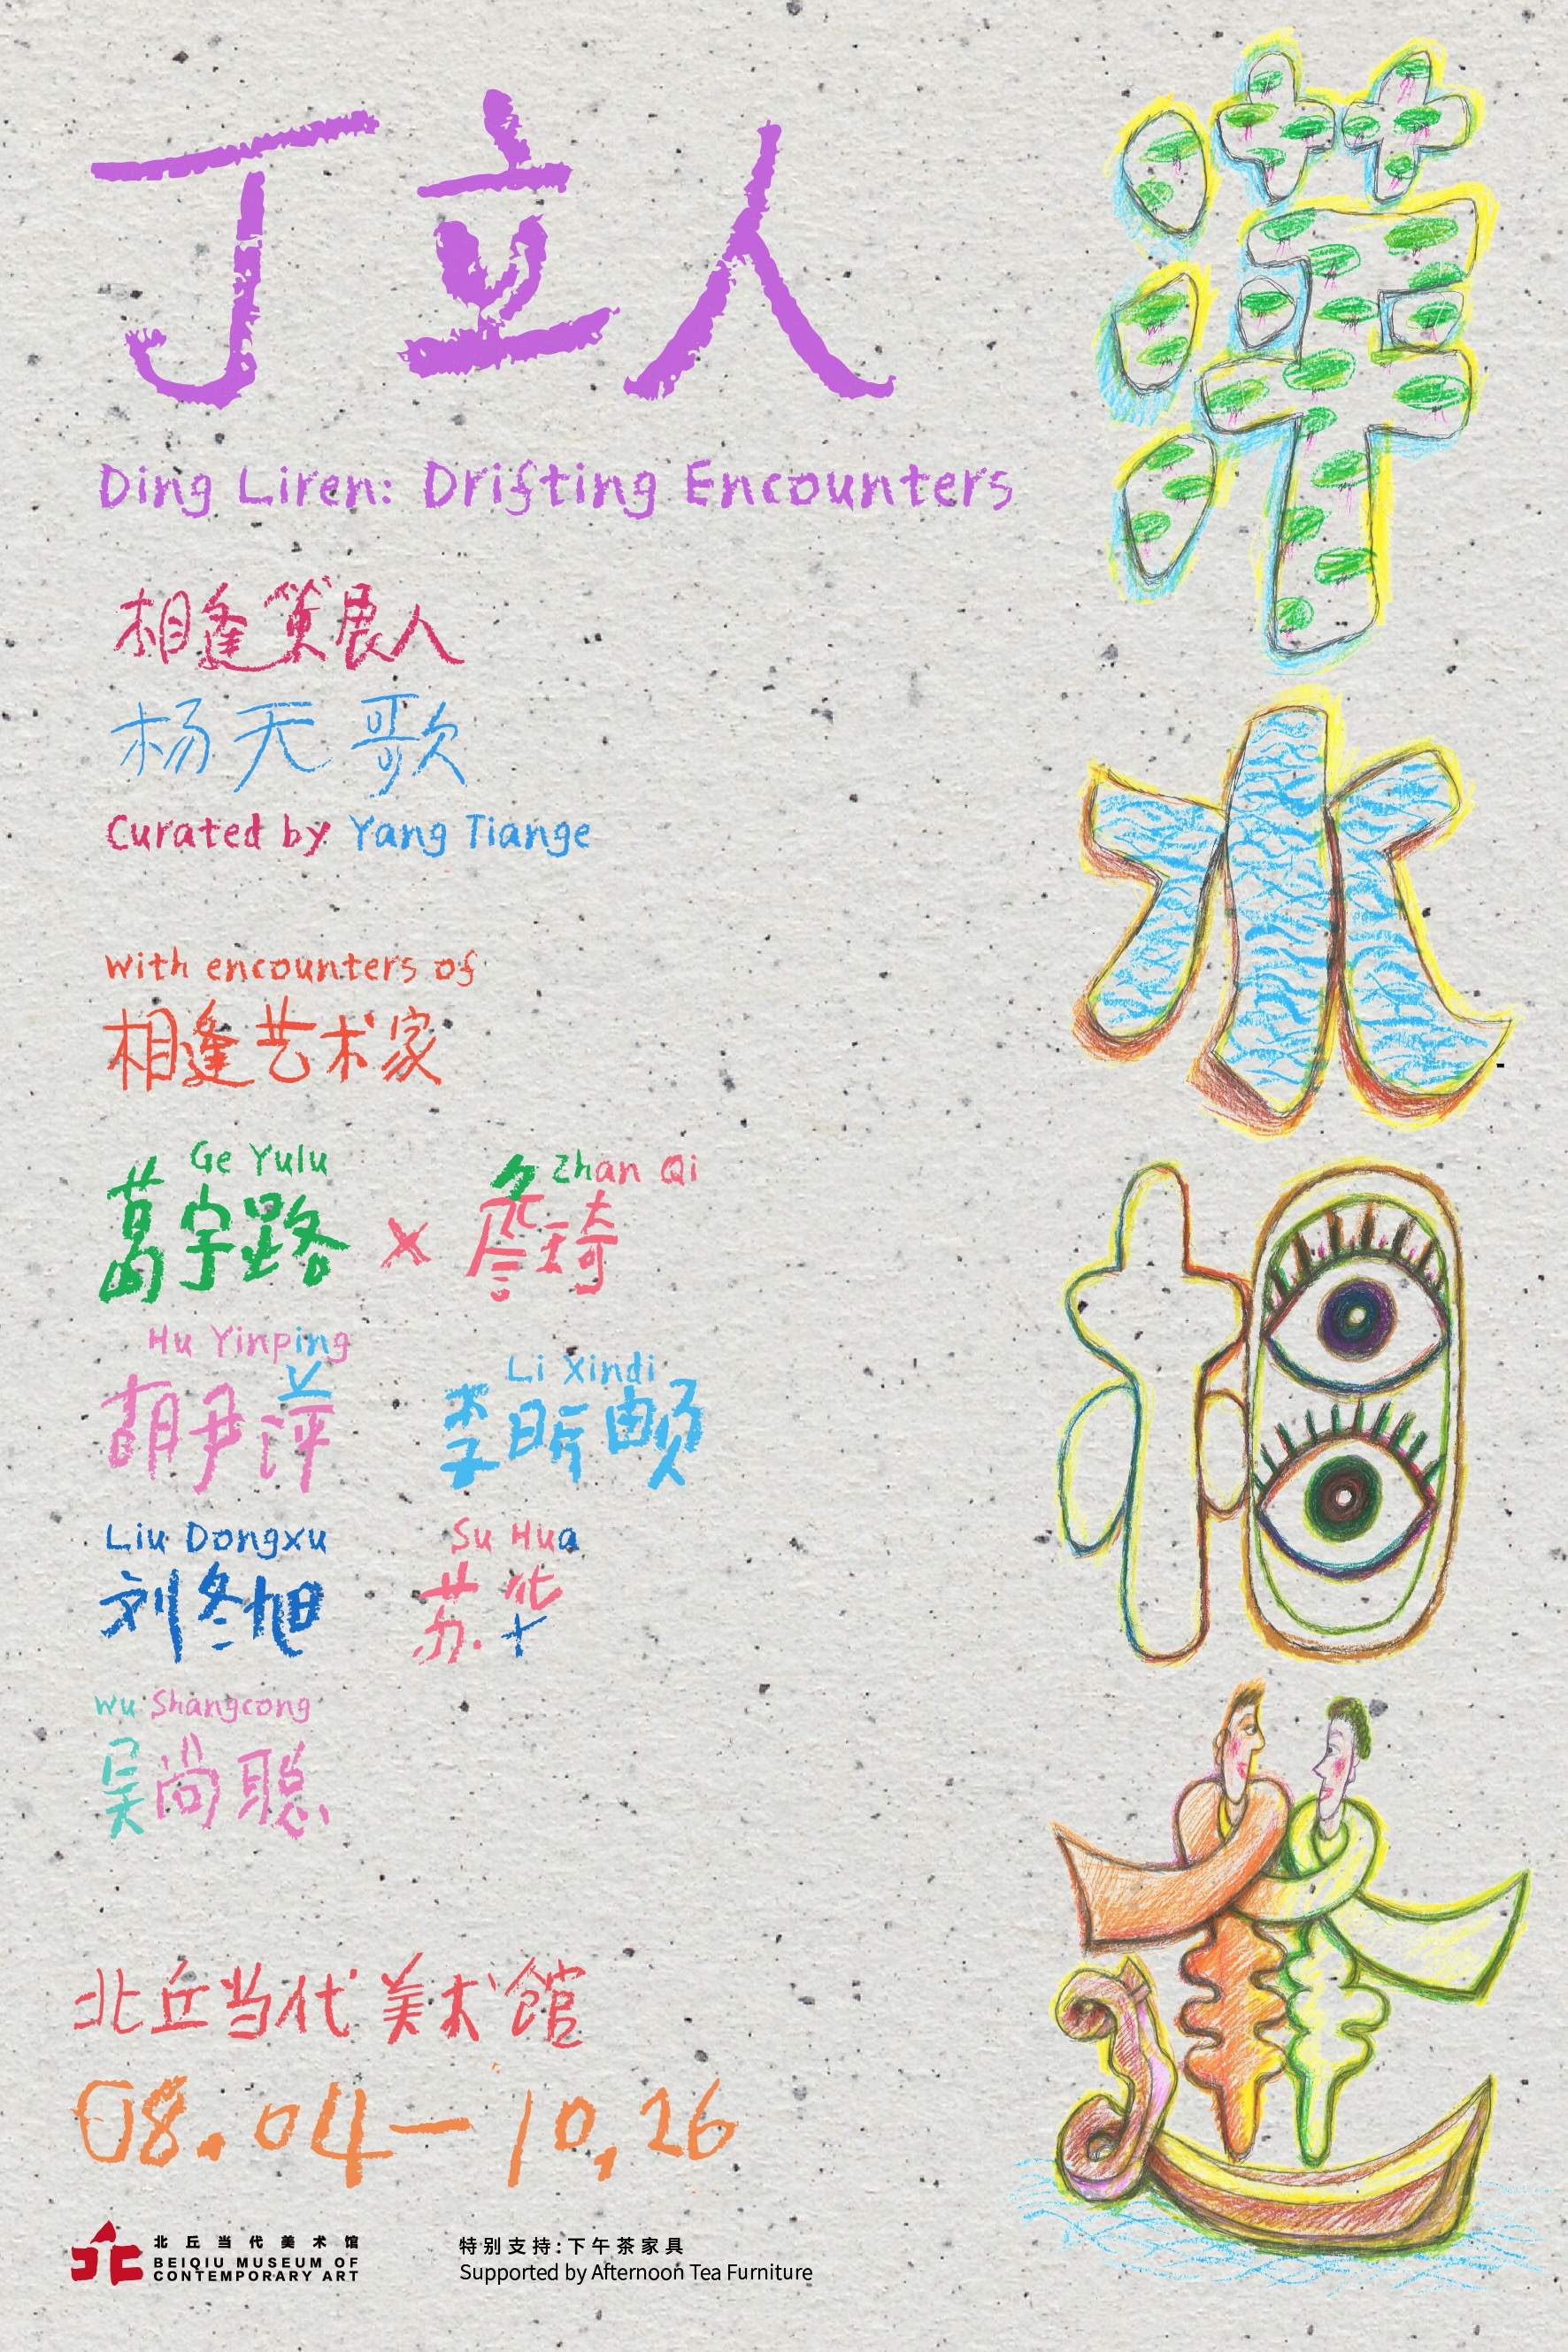 丁立人
Ding Liren: Drifting Encounters
萍水相逢
相逢策展人
杨天歌
Curated by Yang Tiange
with encounters of
相逢艺术家
Ge Yulu
葛宇路
×
Zhan Qi
詹琦
Hu Yinping
胡尹萍
Li Xindi
李昕𬱖
Liu Dongxu
刘冬旭
Su Hua
苏华
Wu Shangcong
吴尚聪
北丘当代美术馆
08.04—10.26
北丘当代美术馆
BEIQIU MUSEUM OF
CONTEMPORARY ART
特别支持:下午茶家具
Supported by Afternoon Tea Furniture